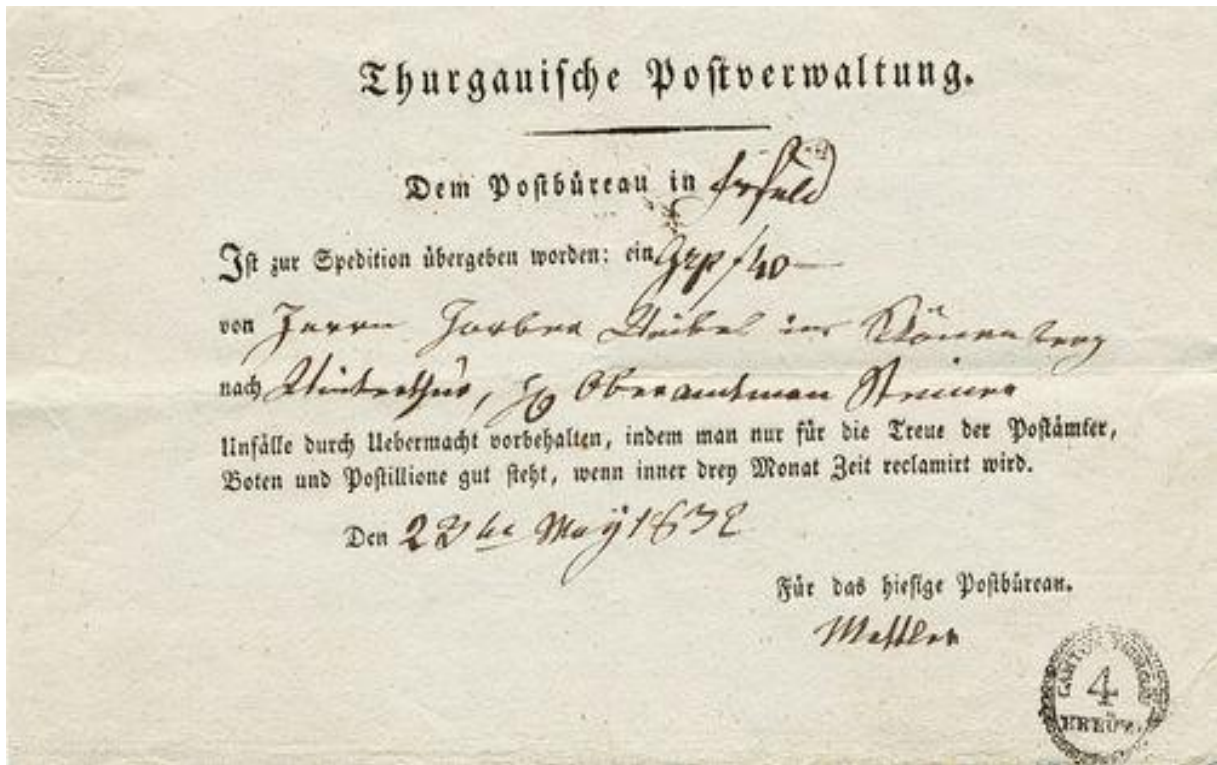 Thurgauische Postverwaltung.
Dem Postbüreau in
Ist zur Spedition übergeben worden: ein
von Herrn in
nach Winterthur, Oberamtman Steiner
Unfälle durch Uebermacht vorbehalten, indem man nur für die Treue der Postämter,
Boten und Postillione gut steht, wenn inner drey Monat Zeit reclamirt wird.
Den May 1832
Für das hiesige Postbüreau.
CANTON THURGAU
4
KREUZ.